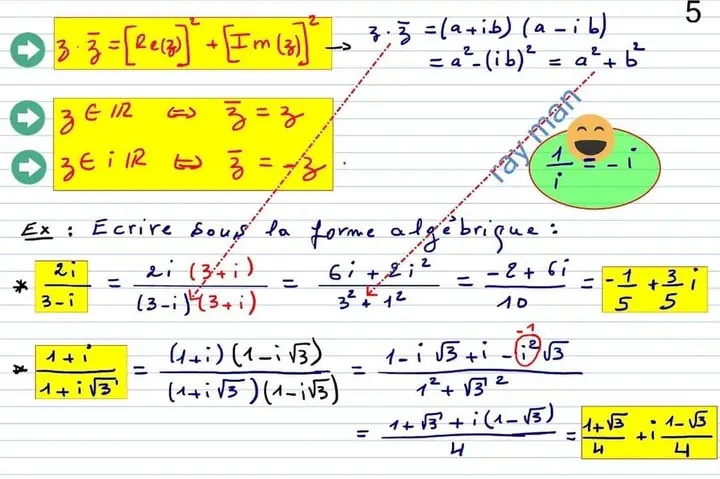 5
z . z̄ = [Re(z)]² + [Im(z)]² → z . z̄ = (a+ib) (a-ib)
= a² - (ib)² = a² + b²
z ∈ IR ⇔ z̄ = z
z ∈ i IR ⇔ z̄ = -z .
ray man
1/i = -i
Ex : Ecrire sous la forme algébrique :
* 2i/(3-i) = 2i (3+i)/((3-i) (3+i)) = (6i + 2i²)/(3² + 1²) = (-2 + 6i)/10 = -1/5 + 3/5 i
* (1+i)/(1+i√3) = (1+i)(1-i√3)/((1+i√3)(1-i√3)) = (1-i√3+i-i²√3)/(1²+√3²)
-1
= (1+√3+i(1-√3))/4 = (1+√3)/4 + i (1-√3)/4